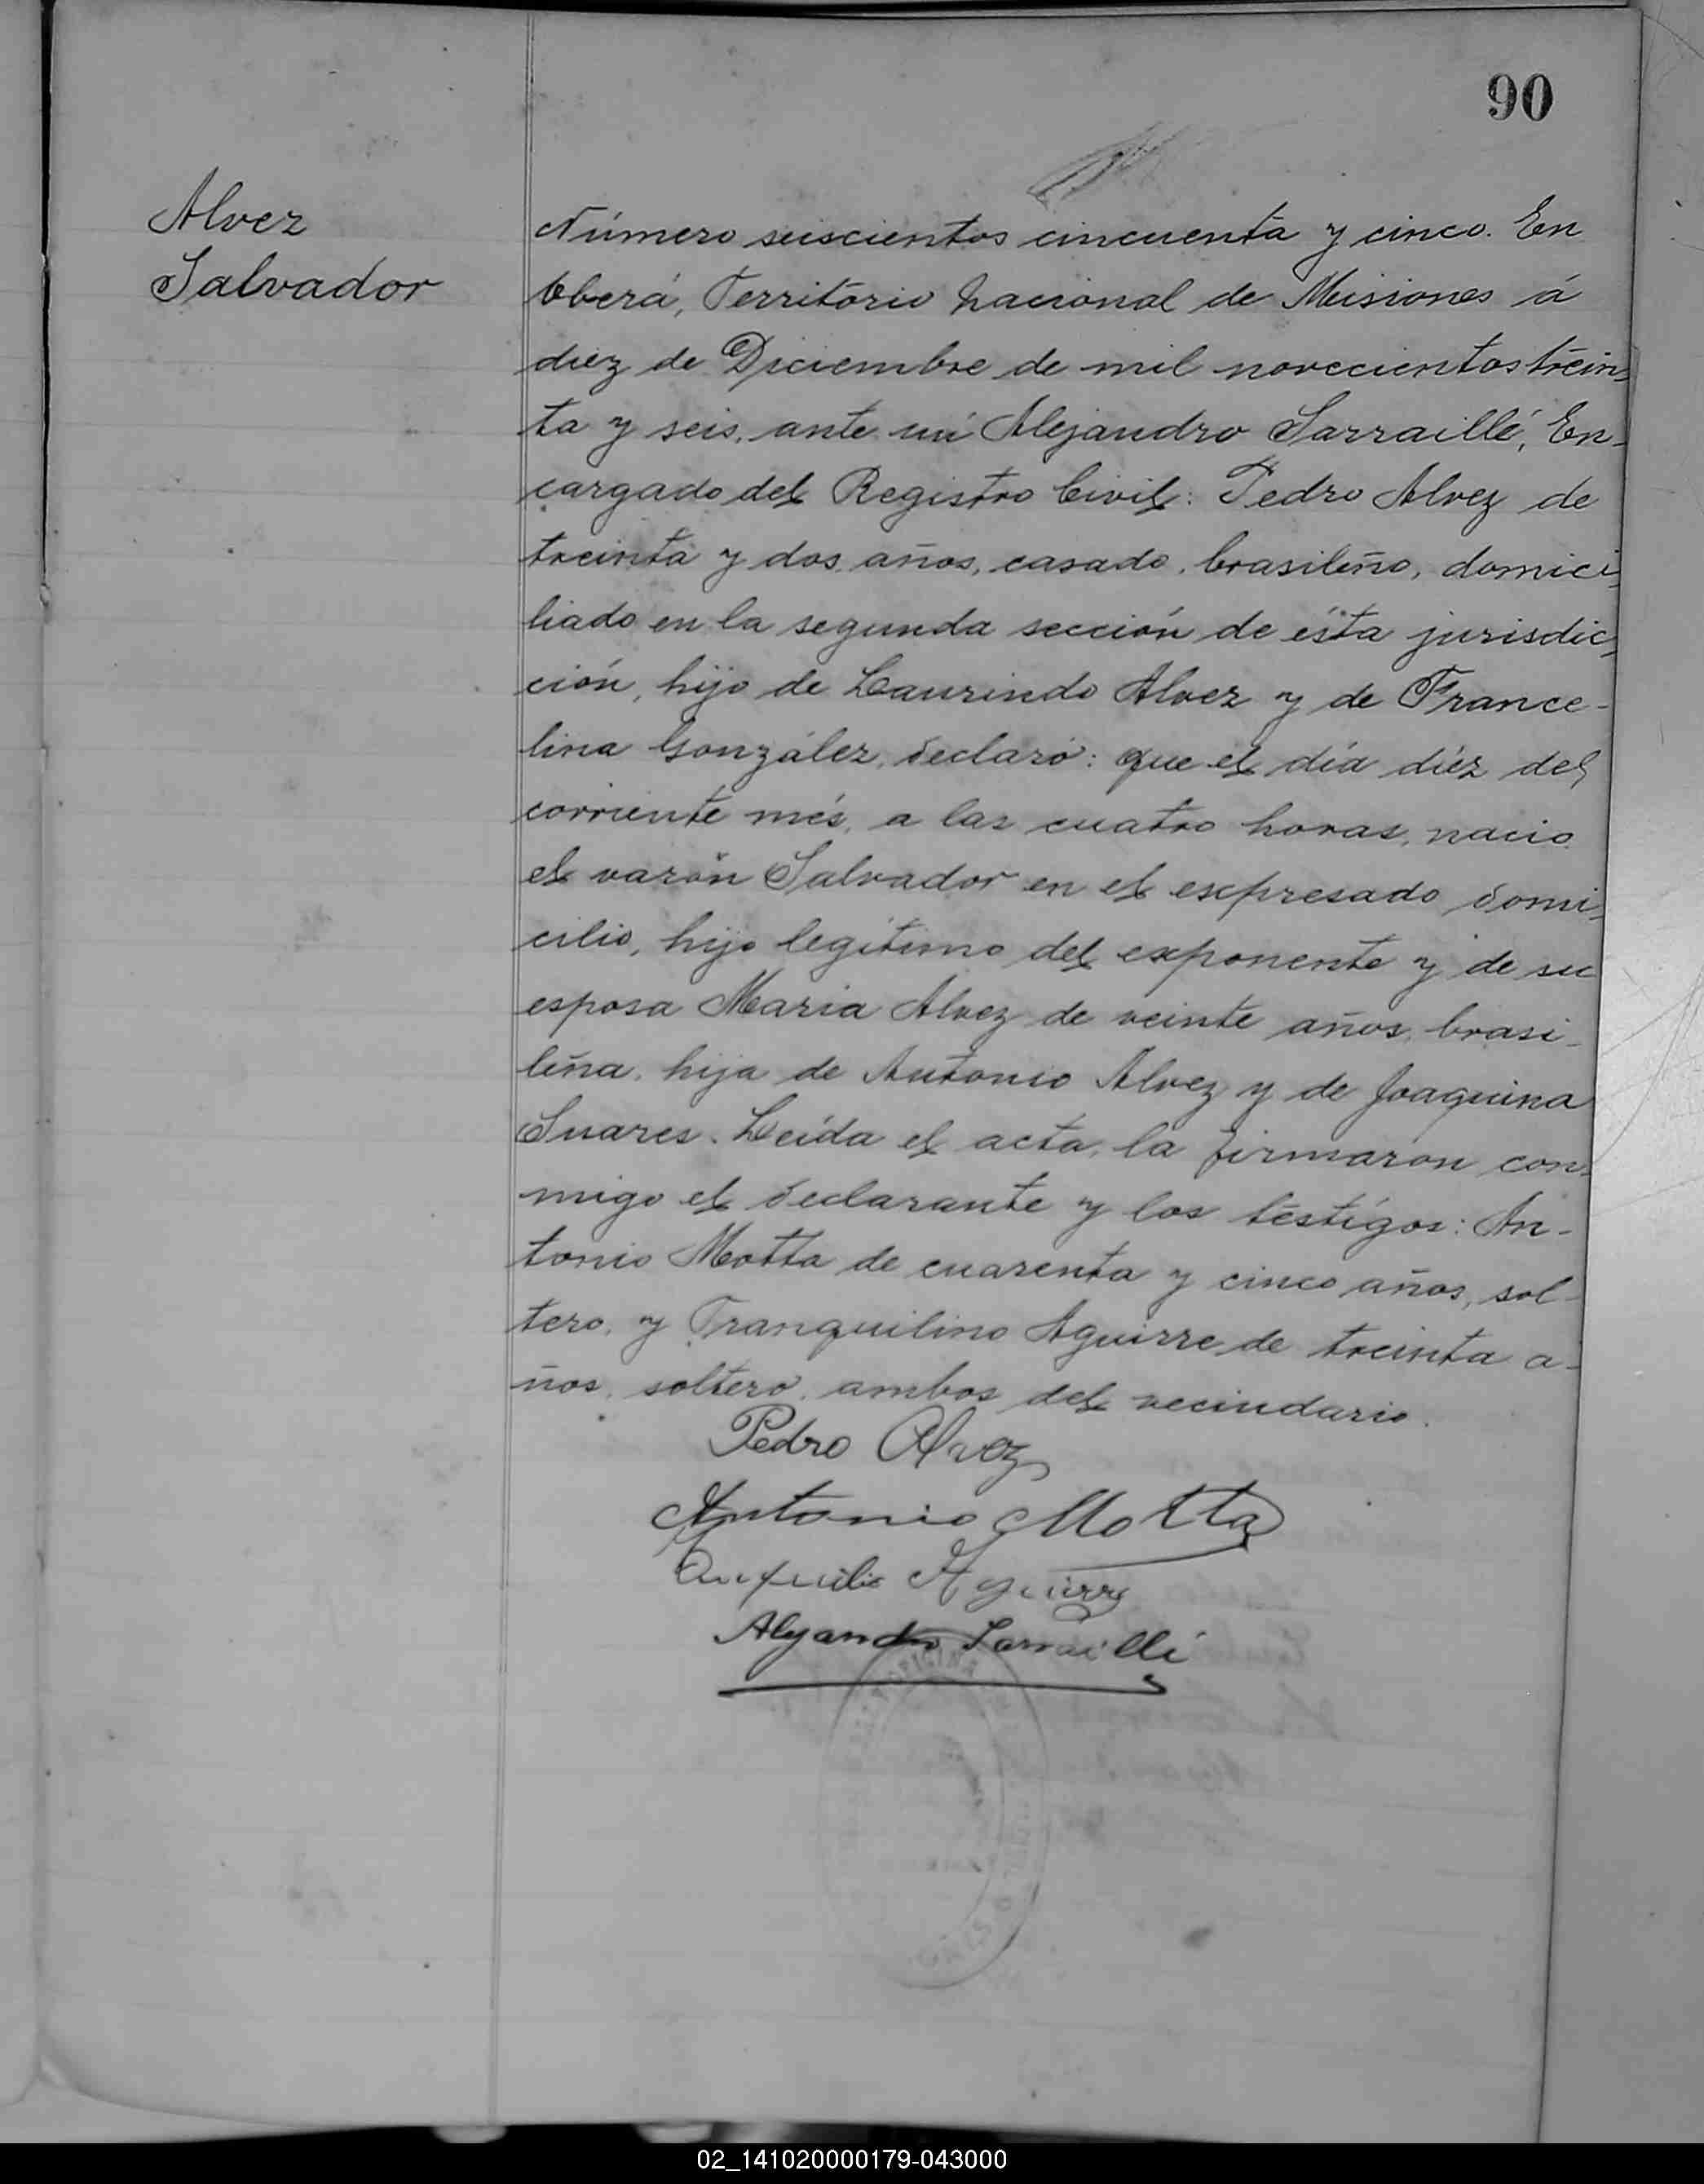 90
Alvez
Salvador
Número seiscientos cincuenta y cinco. En
Oberá, Território Nacional de Misiones á
diez de Diciembre de mil novecientos trein-
ta y seis, ante mí Alejandro Sarraillé, En-
cargado del Registro Civil: Pedro Alvez de
treinta y dos años, casado, brasileño, domici-
liado en la segunda sección de ésta jurisdic-
ción, hijo de Laurindo Alvez y de France-
lina González, declaró: que el día diéz del
corriente més, a las cuatro horas, nacio
el varón Salvador en el expresado domi-
cilio, hijo legítimo del exponente y de su
esposa Maria Alvez de veinte años, brasi-
leña, hija de Antonio Alvez y de Joaquina
Suares. Leída el acta, la firmaron con-
migo el declarante y los testigos: An-
tonio Motta de cuarenta y cinco años, sol-
tero, y Tranquilino Aguirre de treinta a-
ños, soltero, ambos del vecindario.
Pedro Alvez
Antonio Motta
Aguirre
Alejandro Sarraillé
OFICINA
02_141020000179-043000